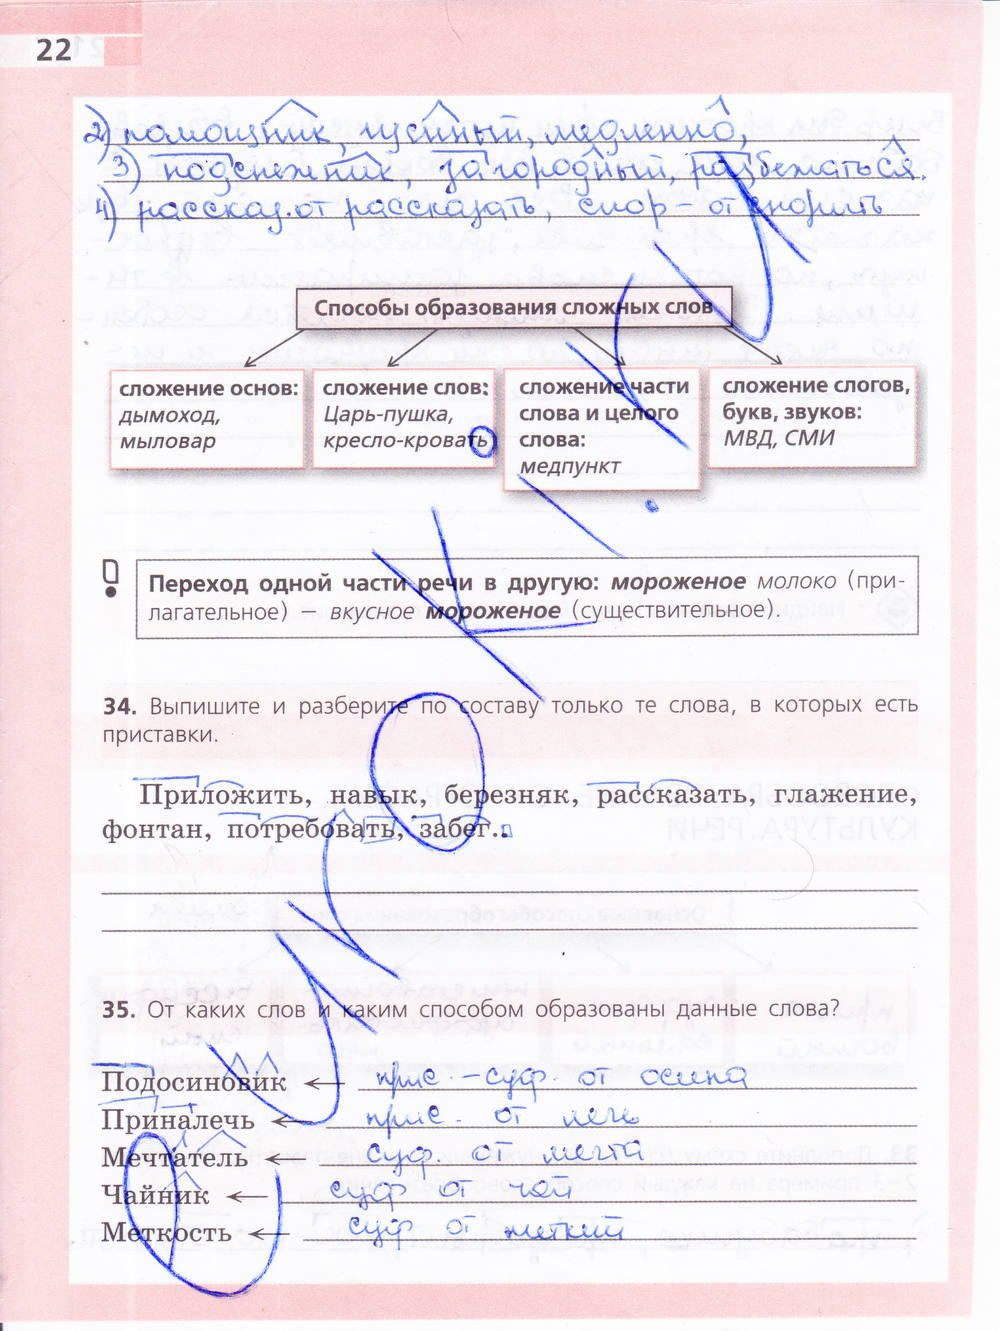 22
2) помощник, чусиный, медленно,
3) подснежник, загородный, разбежаться.
4) рассказ. от рассказать, спор от спорить
Способы образования сложных слов
сложение основ:
дымоход,
мыловар
сложение слов:
Царь-пушка,
кресло-кровать
сложение части
слова и целого
слова:
медпункт
сложение слогов,
букв, звуков:
МВД, СМИ
Переход одной части речи в другую: мороженое молоко (при-
лагательное) – вкусное мороженое (существительное).
34. Выпишите и разберите по составу только те слова, в которых есть
приставки.
Приложить, навык, березняк, рассказать, глажение,
фонтан, потребовать, забег..
35. От каких слов и каким способом образованы данные слова?
Подосиновик ← прис.-суф. от осина
Приналечь ← прис. от лечь
Мечтатель ← суф. от мечта
Чайник ← суф от чай
Меткость ← суф от меткий